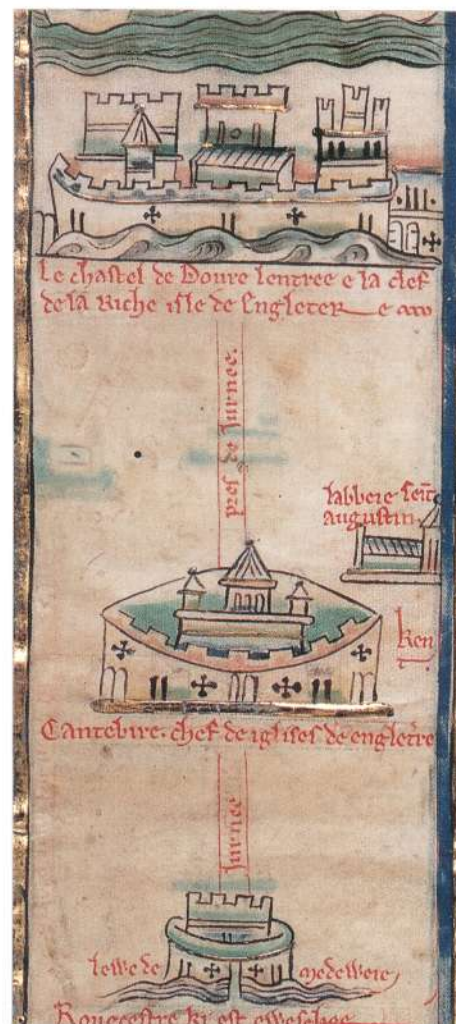 le chastel de Doure lentree e la clef
de la riche isle de Engleter
pres de Jurnee.
labbeie seit
augustin
Ken
t.
Cantebire. chef de iglises de engletre
Jurnee
lewe de medeweie
Roucestre ki est eweschee